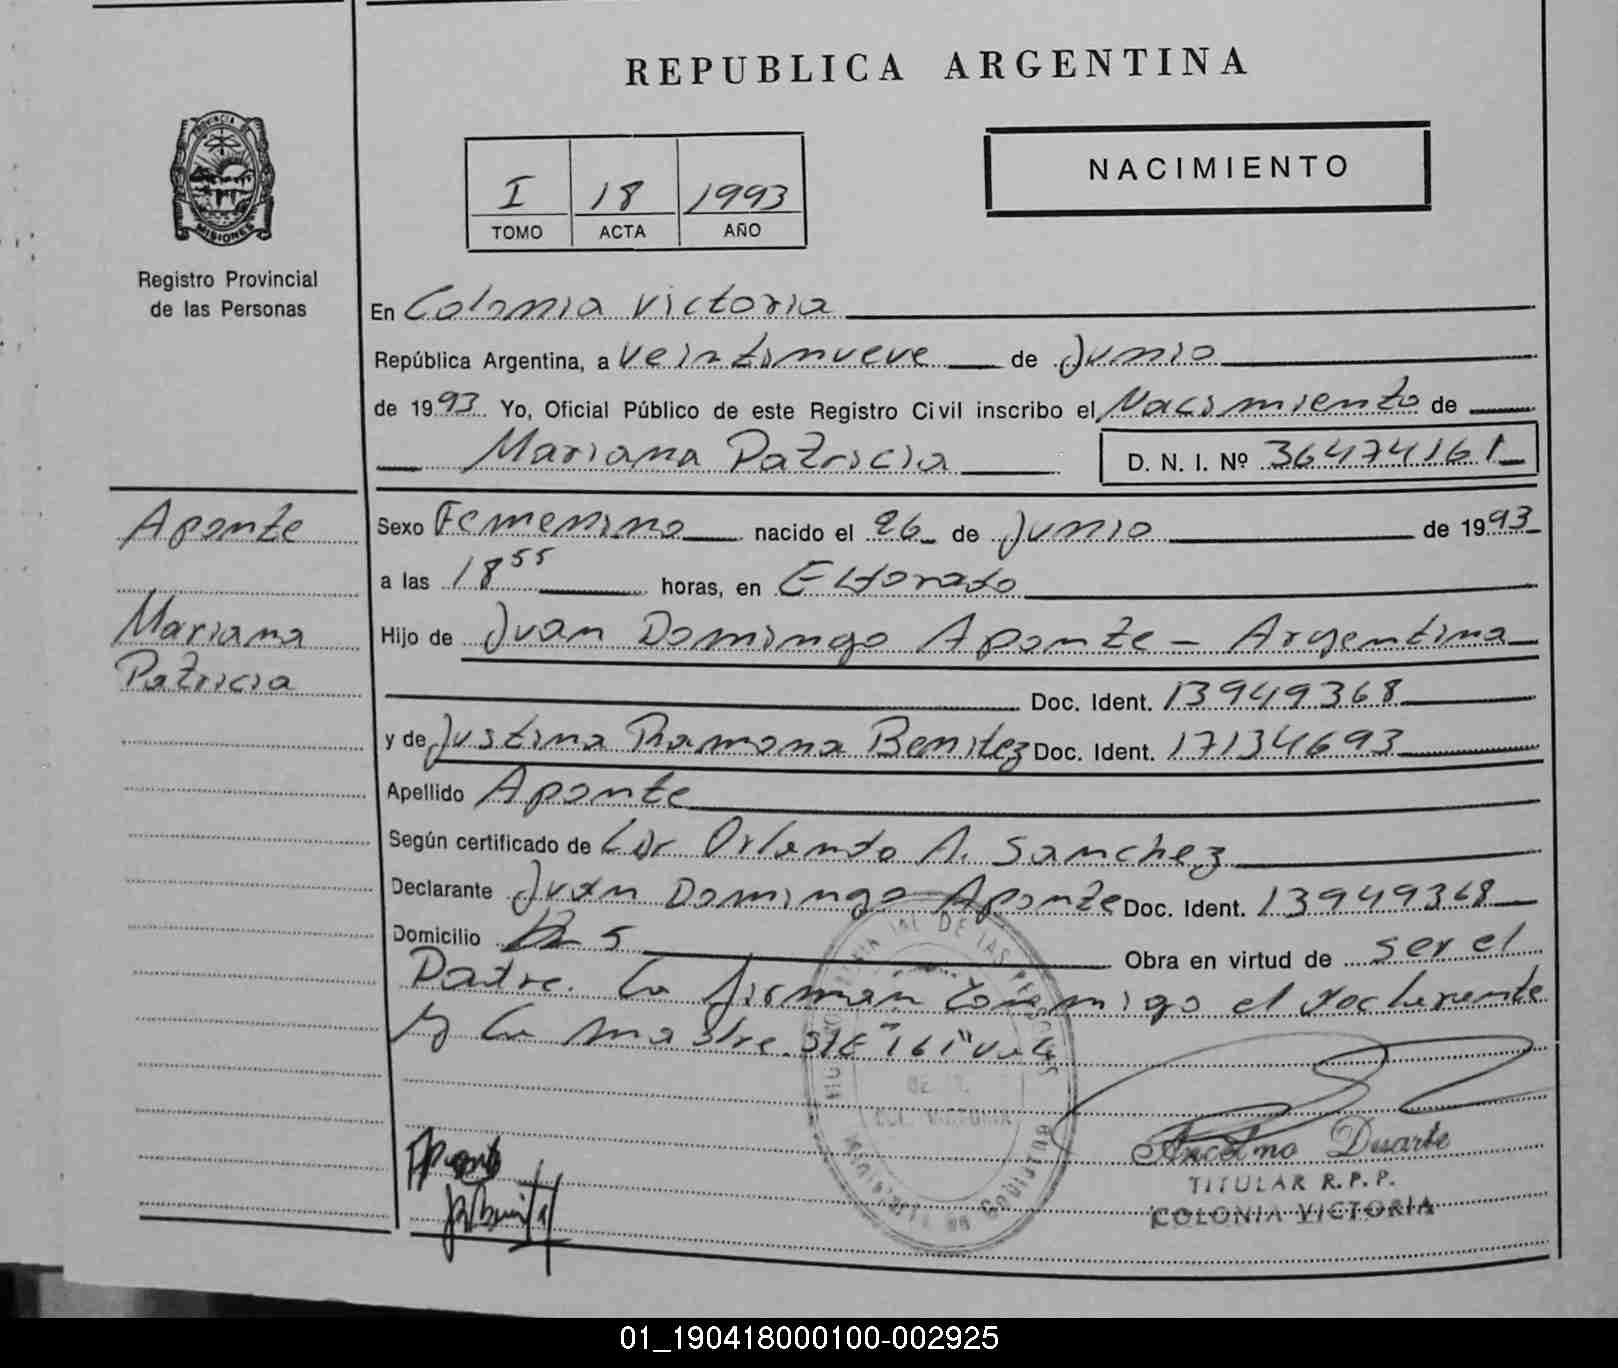 REPUBLICA ARGENTINA
PROVINCIA DE
MISIONES
Registro Provincial
de las Personas
I 18 1993
TOMO ACTA AÑO
NACIMIENTO
En Colonia Victoria
República Argentina, a veintinueve de Junio
de 1993 Yo, Oficial Público de este Registro Civil inscribo el Nacimiento de
Mariana Patricia D. N. I. Nº 36474161
Aponte
Mariana
Patricia
Sexo Femenino nacido el 26 de Junio de 1993
a las 18 55 horas, en Eldorado
Hijo de Juan Domingo Aponte - Argentina
Doc. Ident. 13949368
y de Justina Ramona Benitez Doc. Ident. 17134693
Apellido Aponte
Según certificado de Dr Orlando A. Sanchez
Declarante Juan Domingo Aponte Doc. Ident. 13949368
Domicilio Obra en virtud de ser el
Padre. La firman conmigo el declarante
y la madre.
COL. VICTORIA
Aponte
Ancelmo Duarte
TITULAR R.P.P.
COLONIA VICTORIA
01_190418000100-002925